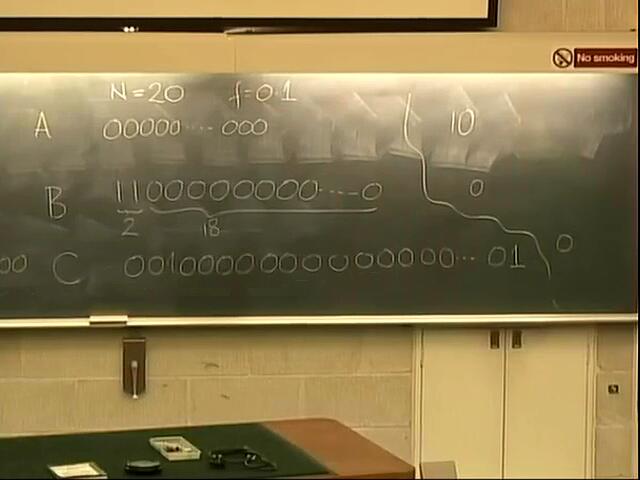 No smoking
N = 20 f = 0.1
A 00000 .... 000 10
B 11000000000....0 0
2 18
00 C 0010000000000000... 01 0